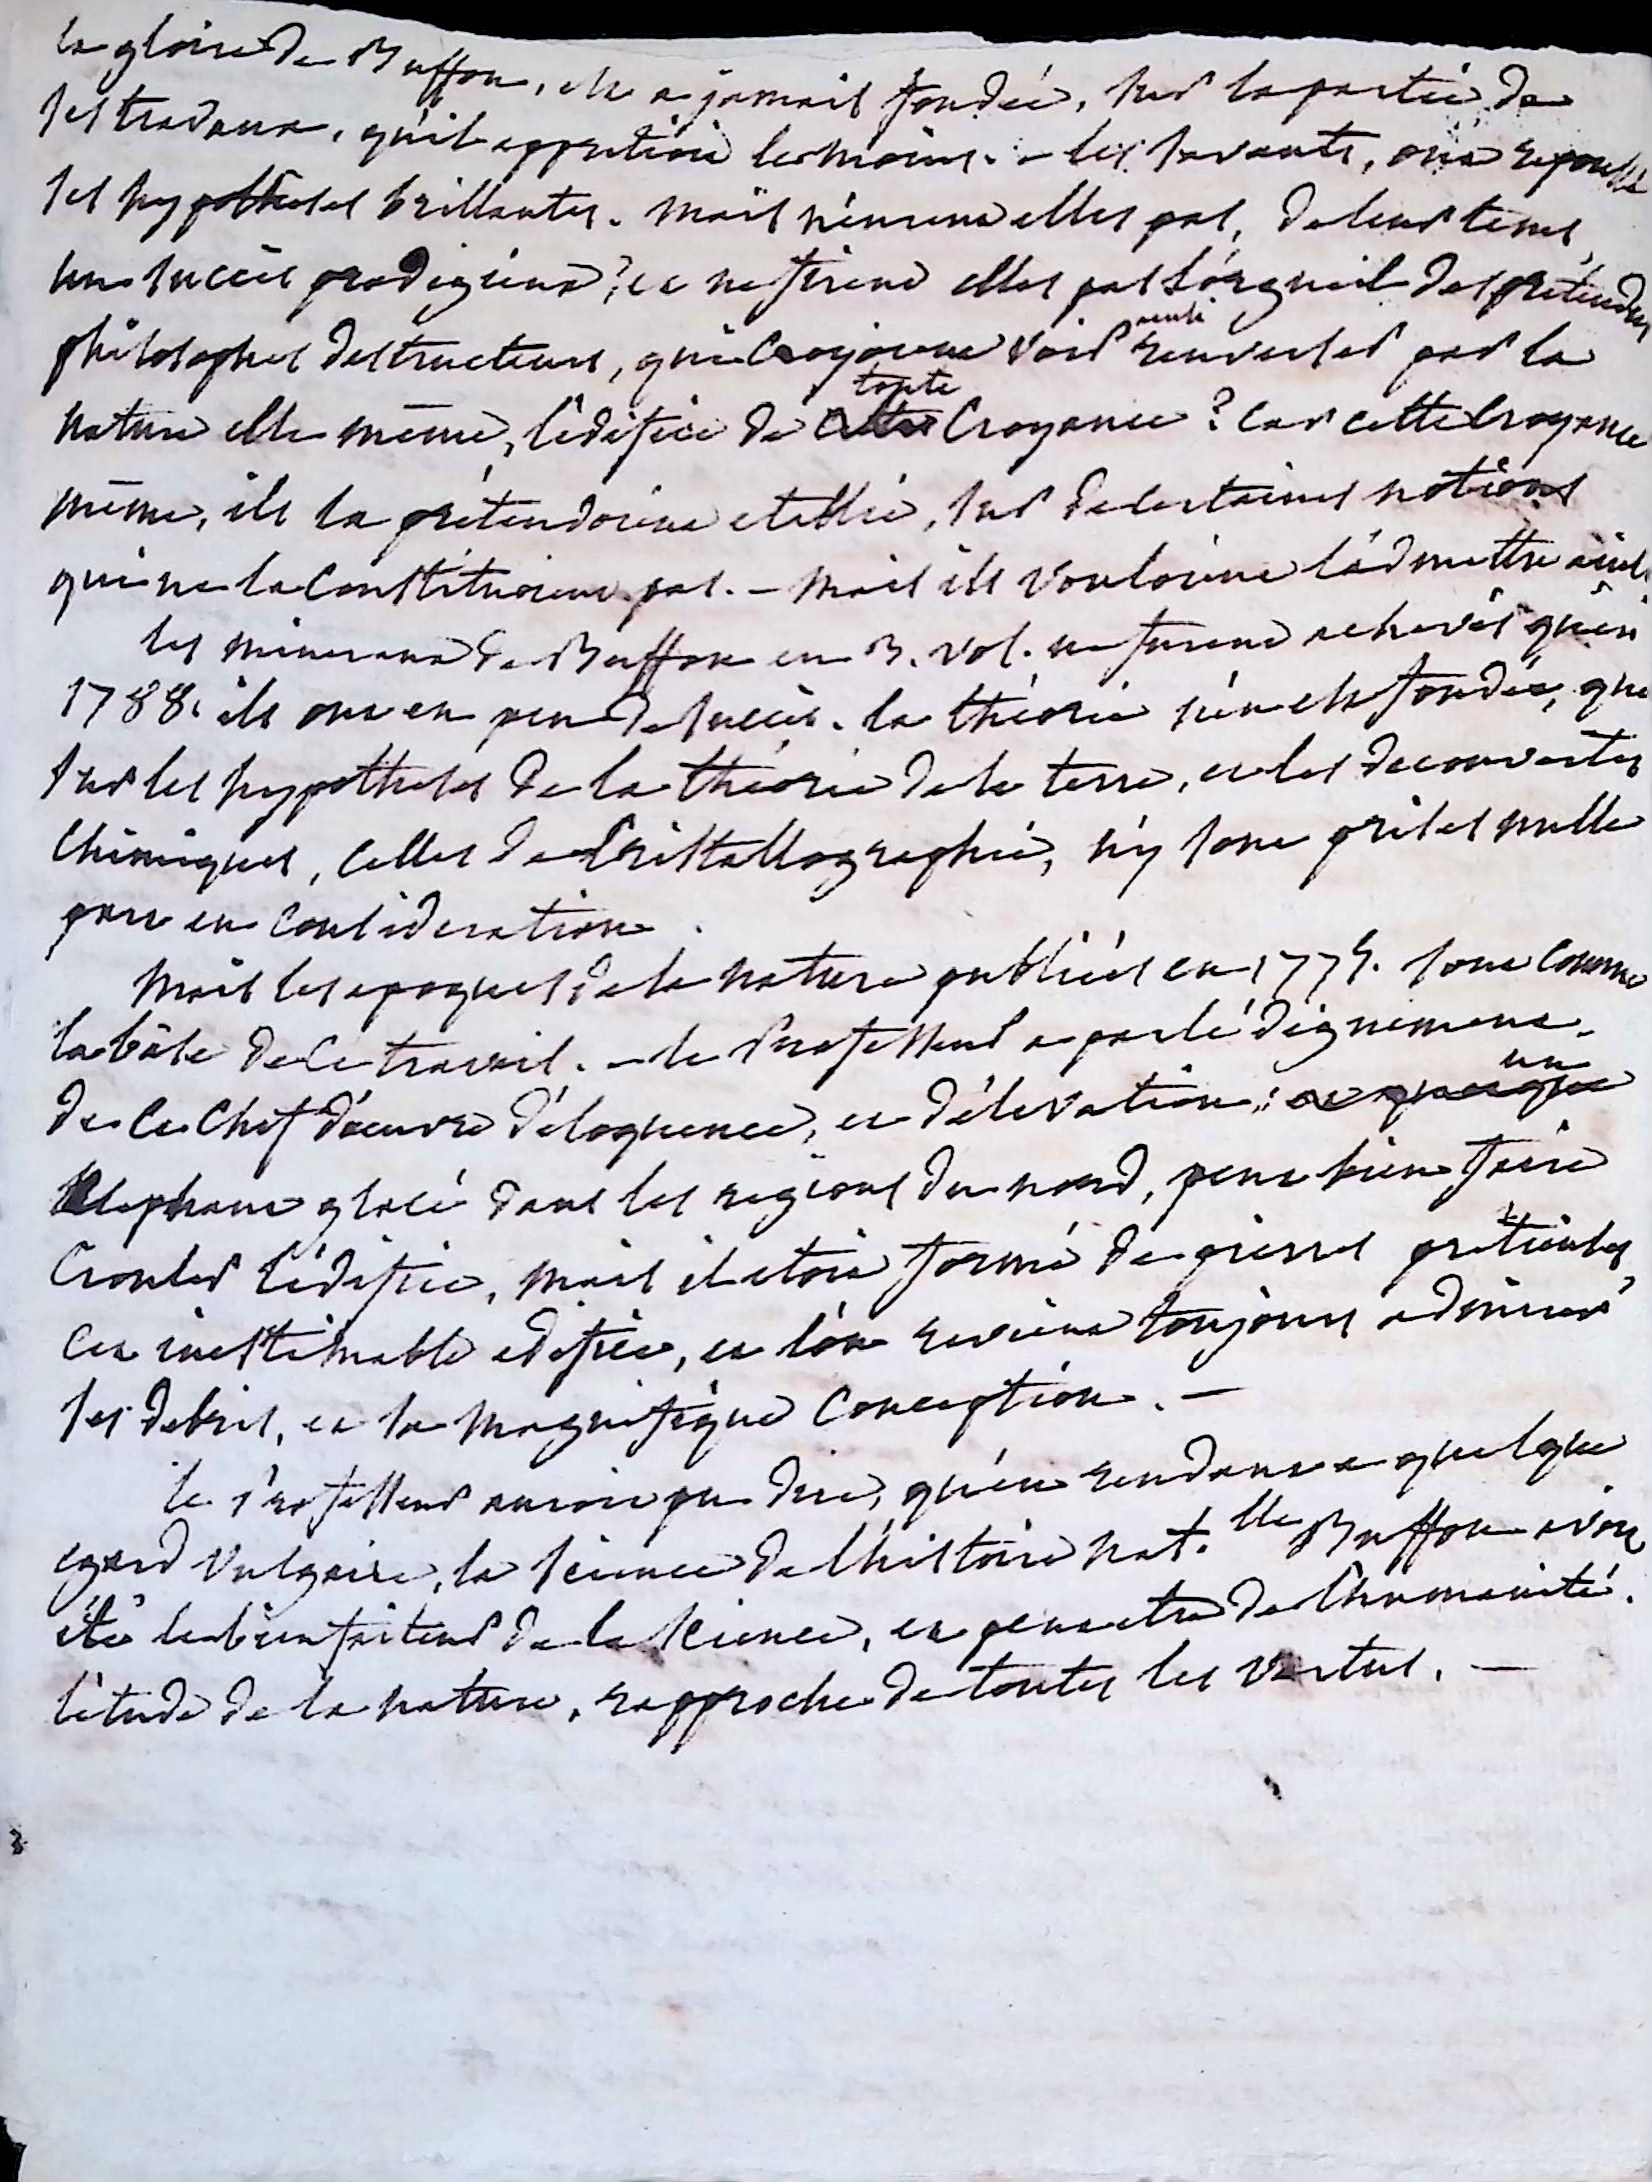 la gloire de Buffon, est a jamais fondée, sur la partie de
ses travaux, qu'il apprétioit le moins. - les savants, ont repoussé
ses hypotheses brillantes. mais n'eurent elles pas, de leur tems,
un succès prodigieux? et ne firent elles pas l'orgueil des prétendus
philosophes destructeurs, qui croyoient voir renverser par la
nature elle même, l'édifice de toute croyance? car cette croyance
même, ils la prétendoient etablie, sur de certaines notions
qui ne la constituoient pas. - mais ils vouloient l'admettre ainsi
les mineraux de Buffon en 5. vol. ne furent achevés qu'en
1788. ils ont eu peu de succès. la théorie n'en est fondée, que
sur les hypotheses de la théorie de la terre, et les decouvertes
chimiques, celles de cristallographie, n'y sont prises nulle
part en consideration.
mais les epoques de la nature publiées en 1779. sont comme
la bâse de ce travail. - le Professeur a parlé dignement
de ce chef d'œuvre d'éloquence, et d'élevation; un
elephant glacé dans les regions du nord, peut bien faire
crouler l'édifice, mais il etoit formé de pierres prétieuses
cet inestimable edifice, et l'on revient toujours admirer
ses debris, et la magnifique conception. -
le Professeur auroit pu dire, qu'en rendant a quelque
egard vulgaire, la science de l'histoire nat.lle Buffon avoit
été le bienfaiteur de la science, et peut etre de l'humanité.
l'étude de la nature, rapproche de toutes les vertus. -